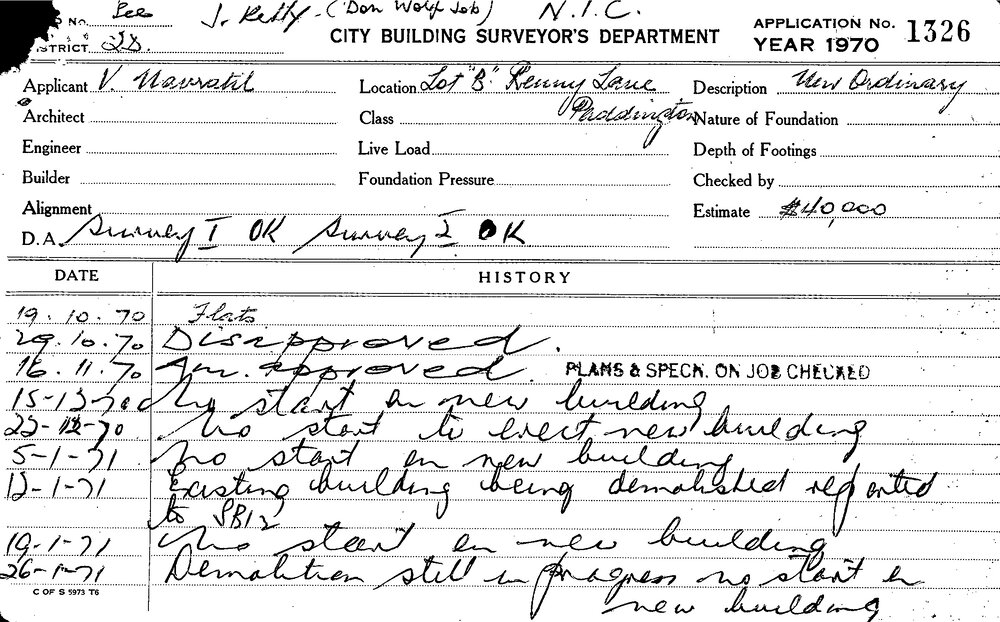 No. See J. Kelly - (Don Wolf Job) N.I.C.
DISTRICT 2D. CITY BUILDING SURVEYOR'S DEPARTMENT APPLICATION No. 1326
YEAR 1970
Applicant V. Navratil Location Lot "B" Renny Lane Description New Ordinary
Architect Class Paddington Nature of Foundation
Engineer Live Load Depth of Footings
Builder Foundation Pressure Checked by
Alignment Estimate $40,000
D.A. Survey I OK Survey 2 OK
DATE HISTORY
19.10.70 Flats
29.10.70 Disapproved.
16.11.70 approved PLANS & SPECN. ON JOB CHECKED
15-12-70 No start on new building
22-12-70 No start to erect new building
5-1-71 No start on new building
12-1-71 Existing building being demolished reported
to SB12
19-1-71 No start on new building
26-1-71 Demolition still in progress no start on
new building
C OF S 5973 T6